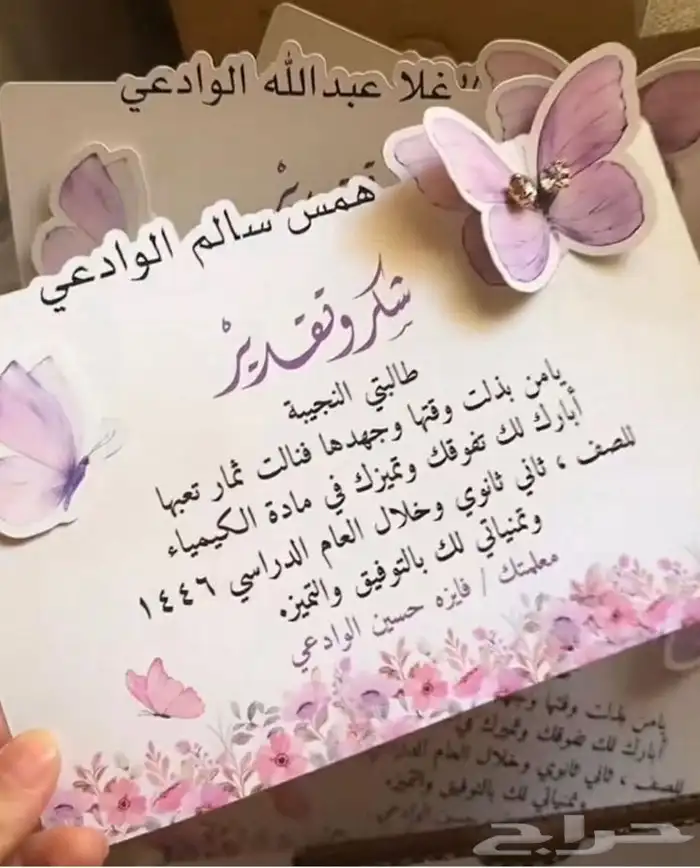 غلا عبدالله الوادعي
همس سالم الوادعي
شكر وتقدير
طالبتي النجيبة
يامن بذلت وقتها وجهدها فنالت ثمار تعبها
أبارك لك تفوقك وتميزك في مادة الكيمياء
للصف ، ثاني ثانوي وخلال العام الدراسي ١٤٤٦
وتمنياتي لك بالتوفيق والتميز.
معلمتك / فايزه حسين الوادعي
يامن بذلت وقتها وجهد
أبارك لك تفوقك وتميزك في
للصف ، ثاني ثانوي وخلال العام
وتمنياتي لك بالتوفيق والتميز.
حسين الوادعي
حراج